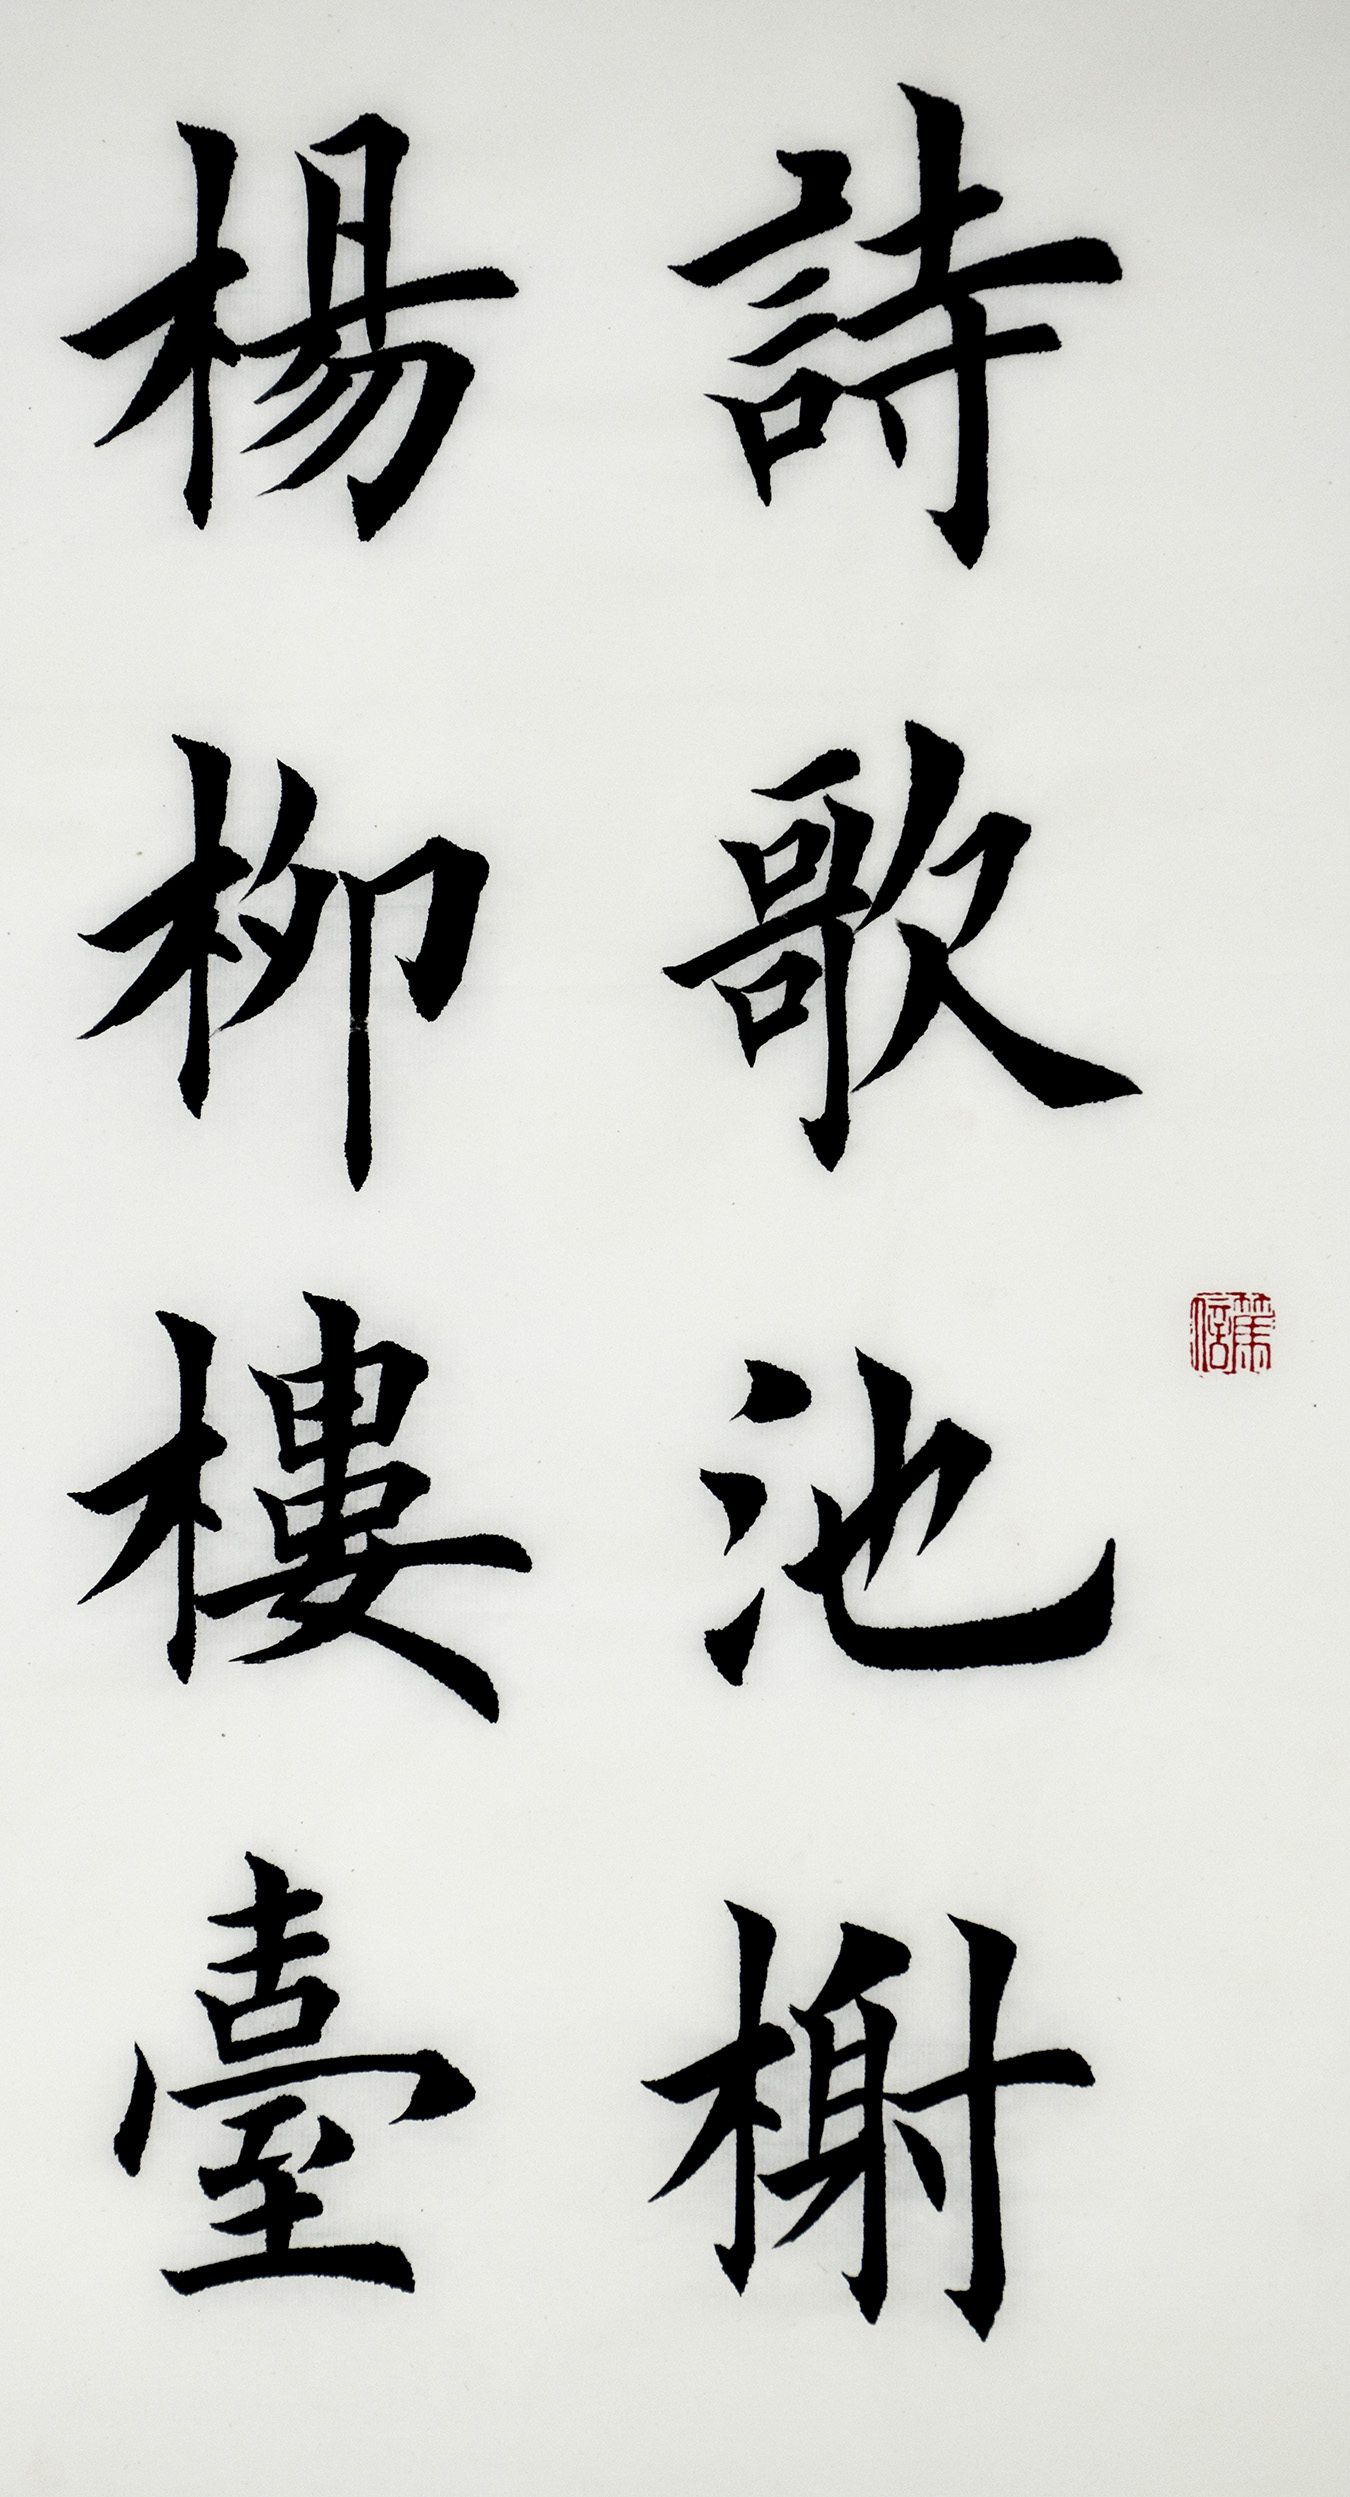 詩歌池榭
楊柳樓臺